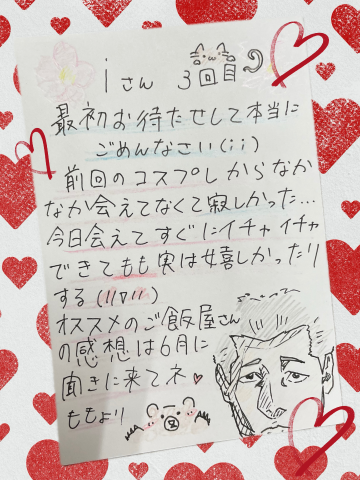 iさん 3回目
最初お待たせして本当に
ごめんなさい(;;)
前回のコスプレからなか
なか会えてなくて寂しかった…
今日会えてすぐにイチャイチャ
できてもも実は嬉しかったり
する(//▽//)
オススメのご飯屋さん
の感想は6月に
聞きに来てネ♡
ももより